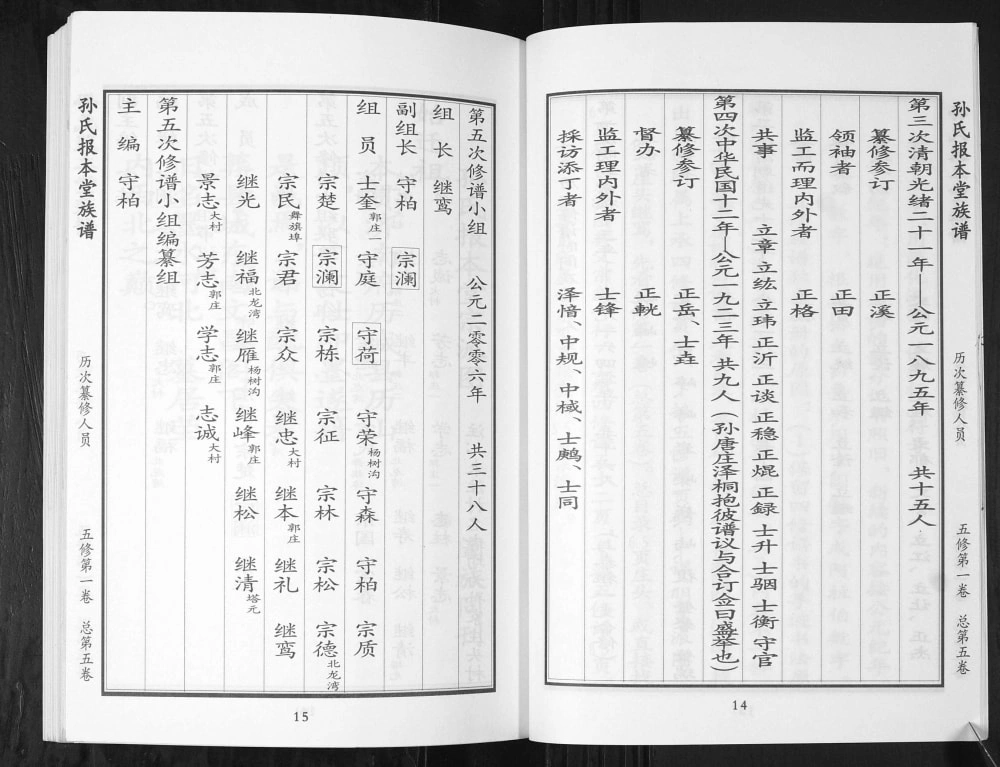 孙氏报本堂族谱
历次纂修人员
五修第一卷 总第五卷
第三次清朝光绪二十一年—公元一八九五年 共十五人
纂修参订 正溪
领袖者 正田
监工而理内外者 正格
共事 立章 立纮 立玮 正沂 正谈 正稳 正焜 正録 士升 士骃 士衡 守官
第四次中华民国十二年—公元一九二三年 共九人（孙唐庄泽桐抱彼谱议与合订佥曰盛举也）
纂修参订 正岳、士垚
督办 正軦
监工理内外者 士锋
採访添丁者 泽愔、中规、中棫、士鹧、士同
14
第五次修谱小组 公元二零零六年 共三十八人
组长 继鸾
副组长 守柏 宗澜
组员 士奎郭庄一 守庭 守荷 守荣杨树沟 守森 守柏 宗质
宗楚 宗澜 宗栋 宗征 宗林 宗松 宗德北龙湾
宗民舞旗埠 宗君 宗众 继忠大村 继本郭庄 继礼 继鸾
继光 继福北龙湾 继雁杨树沟 继峰郭庄 继松 继清塔元
景志大村 芳志郭庄 学志郭庄 志诚大村
第五次修谱小组编纂组
主编 守柏
孙氏报本堂族谱
历次纂修人员
五修第一卷 总第五卷
15